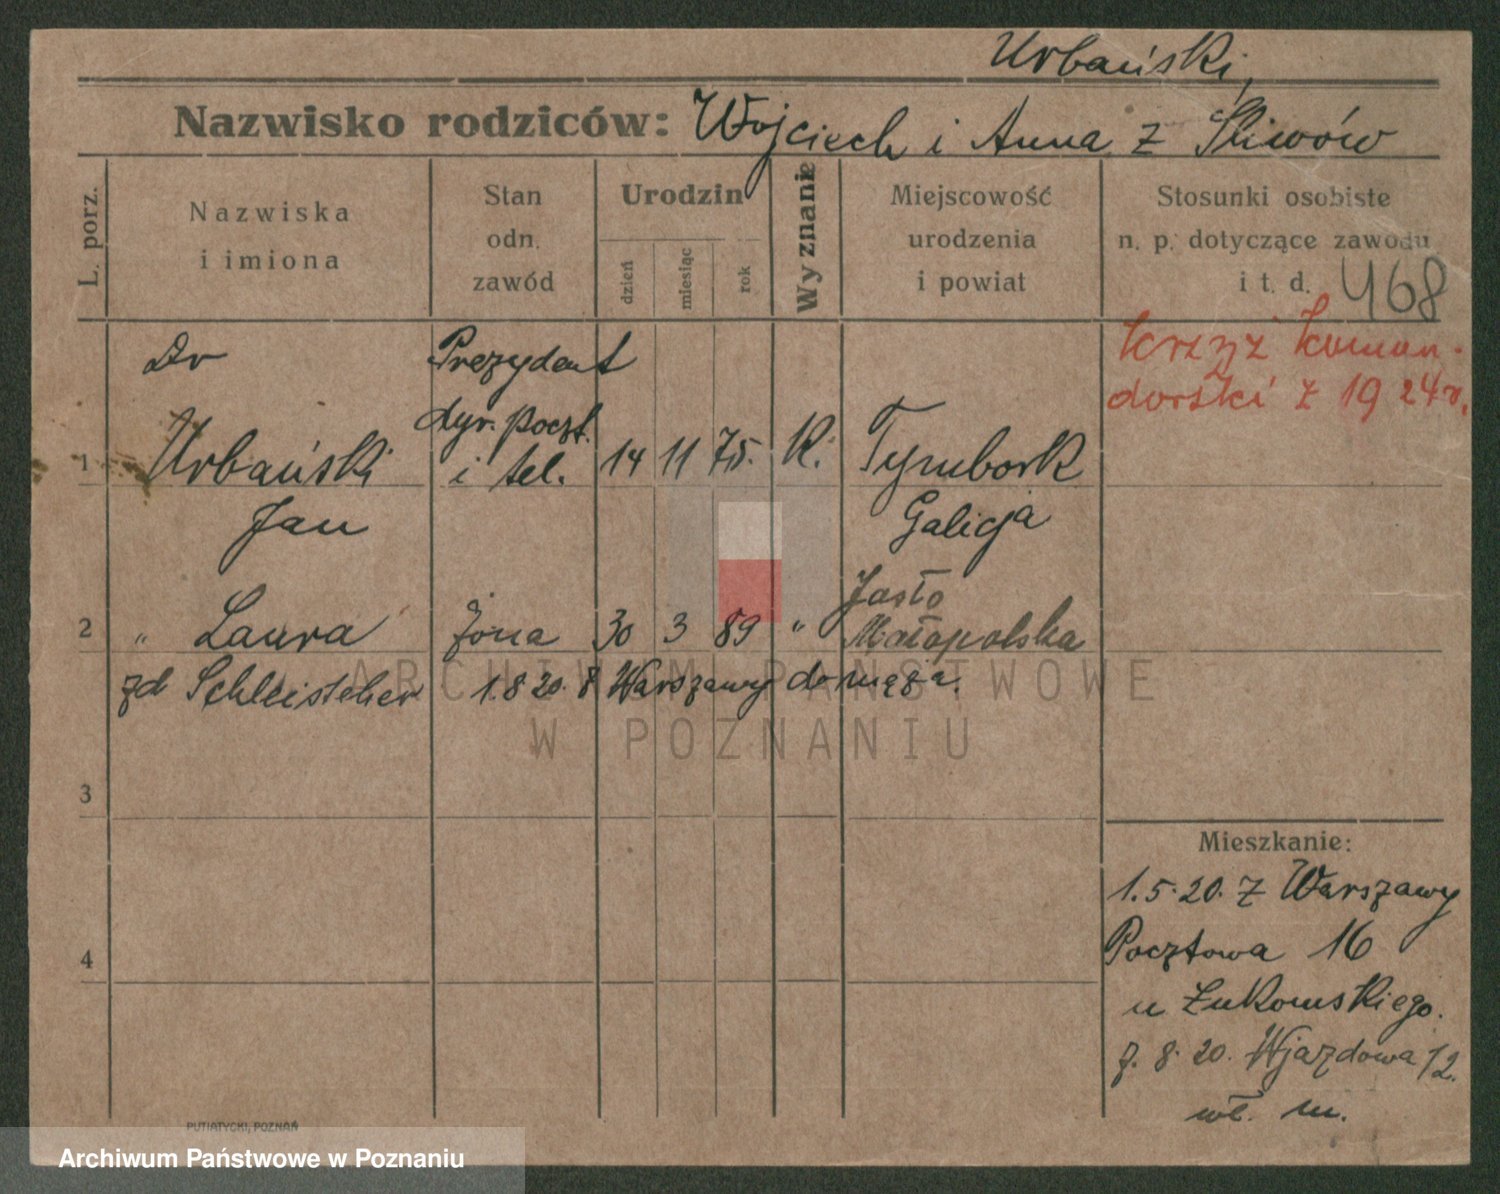 Urbański,
Nazwisko rodziców: Wojciech i Anna z Śliwów
L. porz.
Nazwiska i imiona
Stan odn. zawód
Urodzin
dzień
miesiąc
rok
Wyznanie
Miejscowość urodzenia i powiat
Stosunki osobiste n. p. dotyczące zawodu i t. d.
468
Krzyż koman-
dorski z 1924 r.
Dr
Prezydent
dyr. poczt.
1 Urbański i tel. 14 11 75. K. Tymbork
Jan
Galicja
Jasło
2 „ Laura żona 30 3 89 „ Małopolska
zd Schleistcher 1.8 20. z Warszawy do męża.
3
4
Mieszkanie:
1.5.20. z Warszawy
Pocztowa 16
u Żukowskiego.
8. 20. Wjazdowa
wł. m.
PUTIATYCKI, POZNAŃ
ARCHIWUM PAŃSTWOWE
W POZNANIU
Archiwum Państwowe w Poznaniu